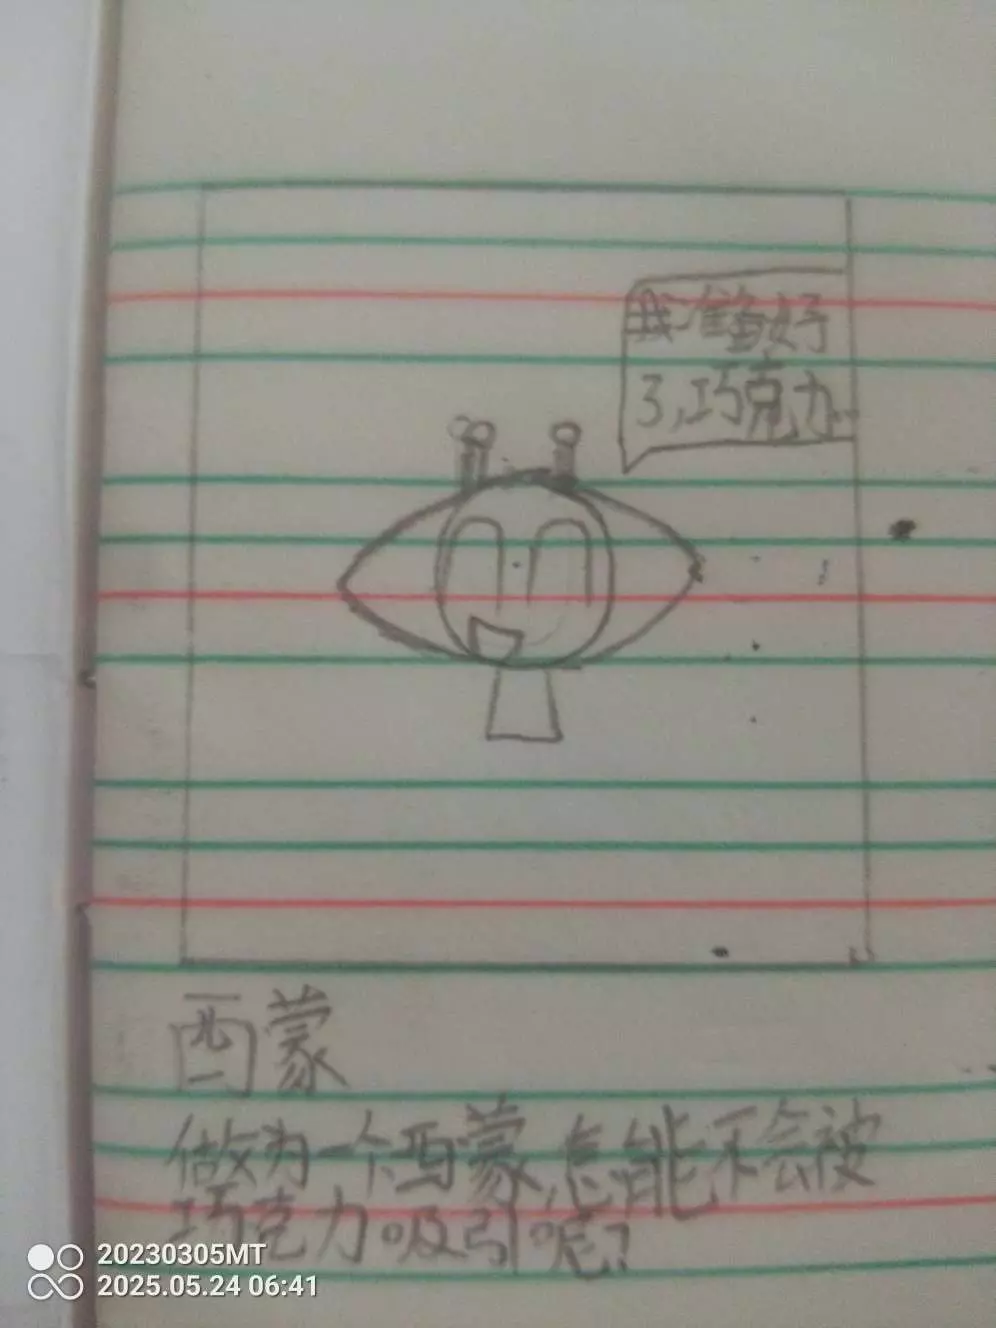 我准备好
了,巧克力..
西蒙
做为一个西蒙,怎能不会被
巧克力吸引呢?
20230305MT
2025.05.24 06:41